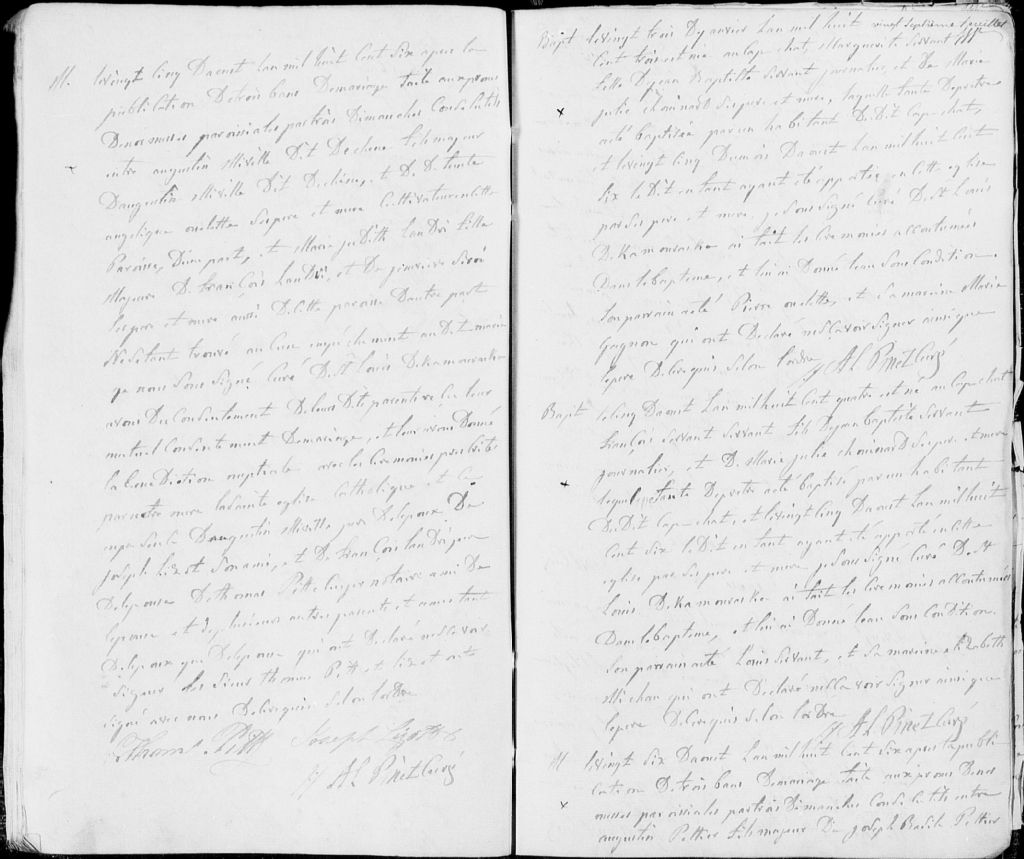 M. le vingt cinq Daoust Lan mil huit Cent Six apres la
publication De trois bans De mariage faite aux prones
De nos messes paroissiales par trois Dimanches Consecutifs
entre augustin Miville Dit Dechene fils majeur
Daugustin Miville Dit Dechene, et D.
angelique ouelette Ses pere et mere Cultivateur en cette
Paroisse, Dune part, et Marie judith Lan Dri fille
Majeure D. françois Lan Dri, et De
Ses pere et mere aussi De Cette paroisse Dautre part
Ne Setant trouvé aucun empéchement au Dit mariage
je nous Sous Signé Curé De St Louis De Kamouraska
avons Du Consentement De leurs Dits parents reçu leur
mutuel Consentement De mariage, et leur avons Donné
la béné Diction nuptiale avec les Ceremonies prescrites
par notre mere la Sainte eglise Catholique et Ce
en presence Daugustin Miville pere De lepoux De
joseph Lizot Son ami, et De françois lan Dri pere
De lepouse De thomas Pitt notaire ami De
lepouse et De plusieurs autres parents et amis tant
De lepoux que De lepouse qui ont Declaré ne Savoir
Signer les Sieurs thomas Pitt et Lizot ont
Signé avec nous De Ce requis Selon lordre
Thoms. Pitt Joseph
J A L Pinet Curé
vingt Septieme feuillet
Bapt le vingt trois De janvier Lan mil huit
Cent trois est née au Cap chat Marguerite Servant
fille De jean Baptiste Servant journalier, et De Marie
julie chouinard Ses pere et mere, laquelle faute De pretre
a été baptisée par un habitant Du Dit Cap chat,
et le vingt cinq Du mois Daoust Lan mil huit Cent
Six le Dit enfant ayant été apportée en Cette eglise
par Ses pere et mere, je Sous Signé Curé De St Louis
De Kamouraska ai fait les Ceremonies accoutumées
Dans le bapteme, et lui ai Donné leau Sous Condition.
Son parrain a été Pierre ouelette, et Sa marraine Marie
Gagnon qui ont Declaré ne Savoir Signer ainsi que
le pere De Ce requis Selon lordre J A L Pinet Curé
Bapt le cinq Daoust Lan mil huit Cent quatre est né au Cap chat
François Servant Servant fils De jean baptiste Servant
journalier, et De Marie julie chouinard Ses pere et mere
lequel faute De pretre a été baptisé par un habitant
Du Dit Cap chat, et le vingt cinq Daoust Lan mil huit
Cent Six le Dit enfant ayant été apporté en Cette
eglise par Ses pere et mere je Sous Signé Curé De St
Louis De Kamouraska ai fait les Ceremonies accoutumées
Dans le bapteme, et lui ai Donné leau Sous Condition.
Son parrain a été Louis Servant, et Sa marraine elizabeth
Michau qui ont Declaré ne Savoir Signer ainsi que
le pere De Ce requis Selon lordre J A L Pinet Curé
M le vingt Six Daoust Lan mil huit Cent Six apres la publi
cation De trois bans De mariage faite aux prones De nos
messes paroissiales par trois Dimanches Consecutifs entre
augustin Peltier fils majeur De joseph Basile Peltier